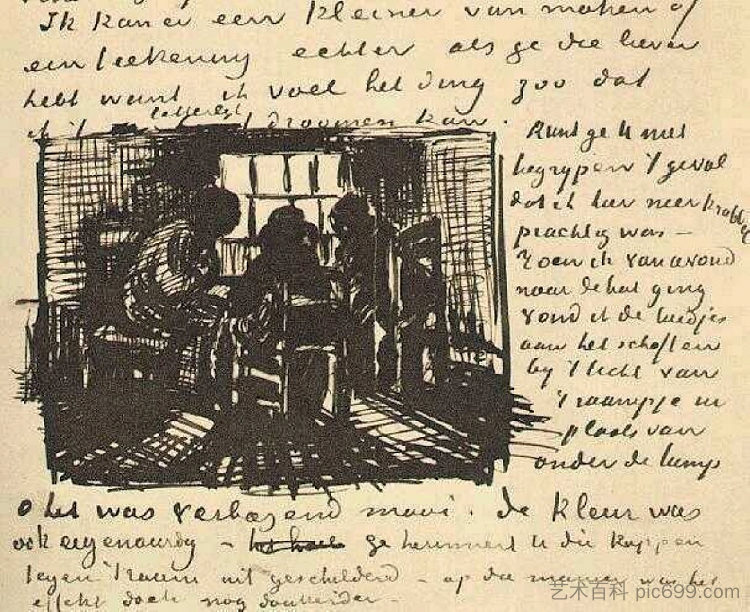 Ik kan er een kleiner van maken of
een teekening echter als ge die liever
hebt want ik voel het ding zoo dat
ik 't letterlijk droomen kan.
Kunt ge U niet
begrypen 't geval
dat ik hier neerkrabbel
prachtig was –
Toen ik van avond
naar de hut ging
vond ik de luidjes
aan het schoften
by 't licht van
't raampje in
plaats van
onder de lamp
o het was verbazend mooi. de kleur was
ook eigenaardig – ge herinnert U die koppen
tegen 't raam uit geschilderd – op die manier was het
effekt doch nog donkerder. –
艺术百科 pic699.com